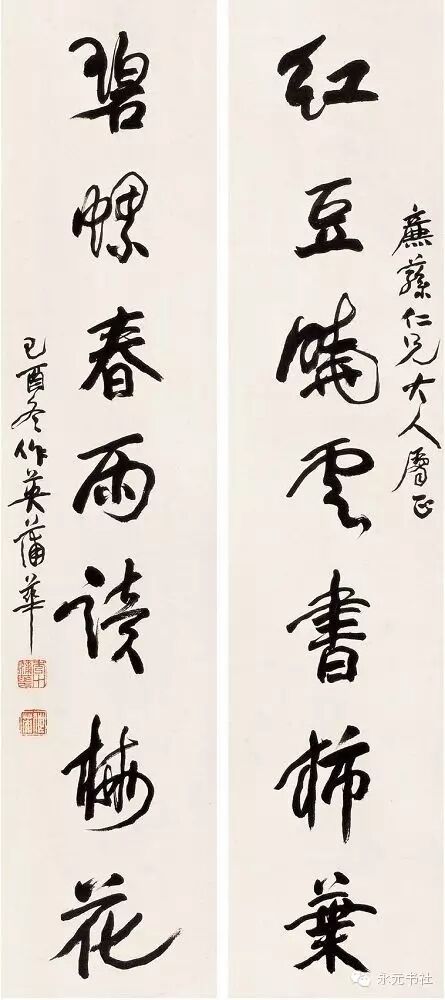 廉蓀仁兄大人屬正
紅豆曉雲書柿葉
碧螺春雨讀梅花
己酉冬作英蒲華
永元书社